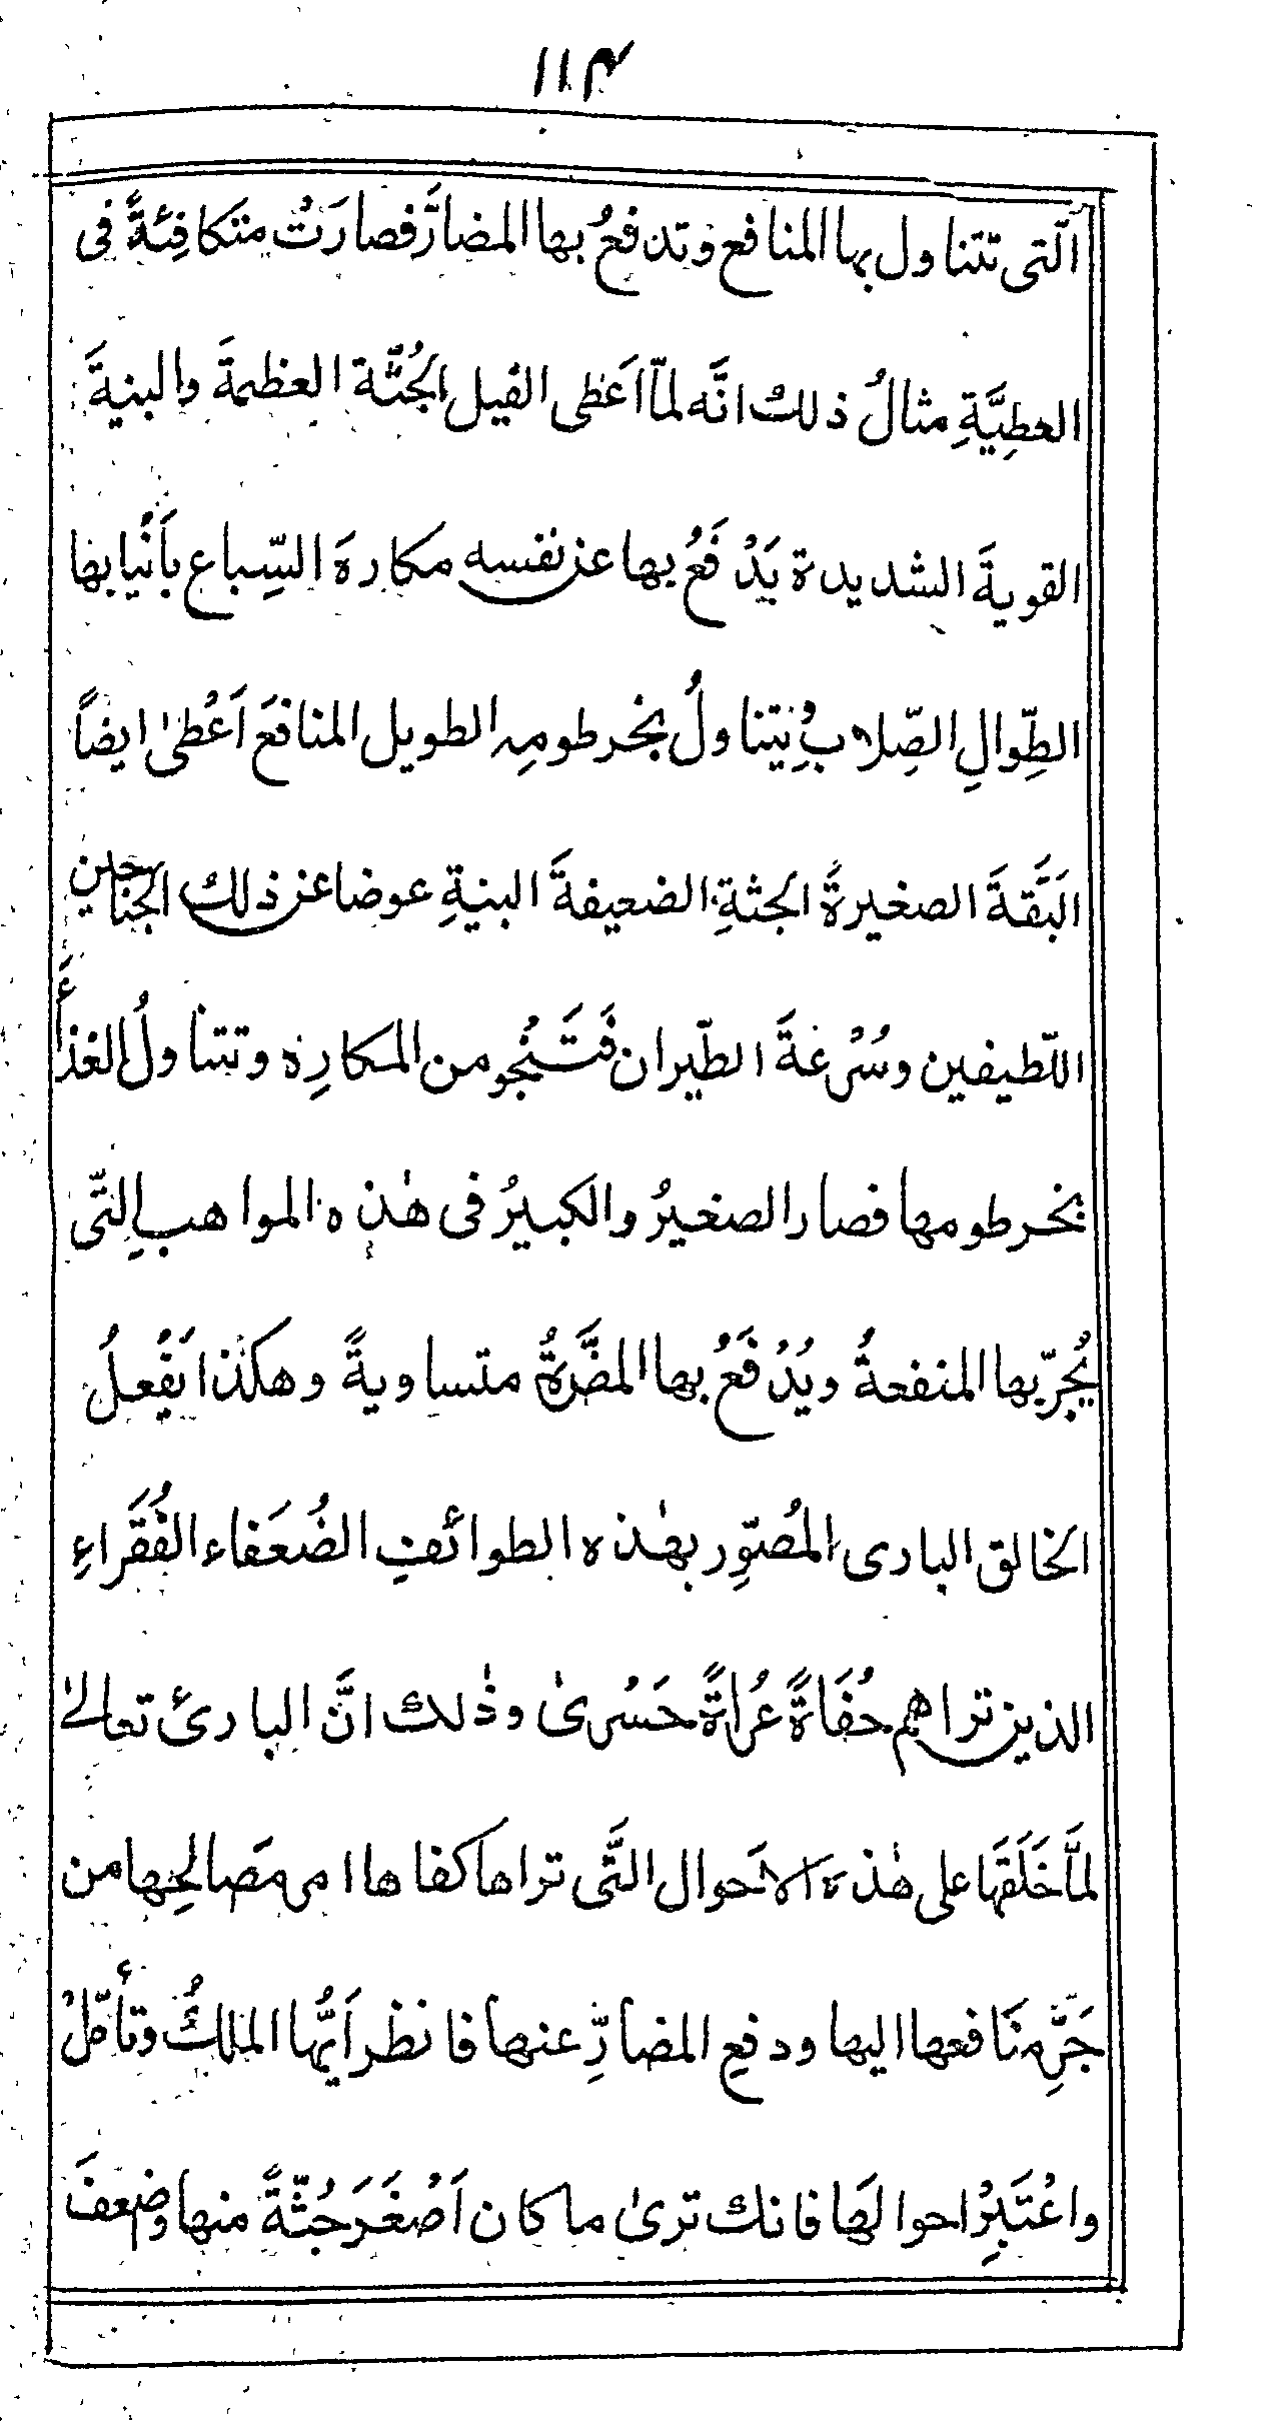 ١١٣
الَّتى تتناول بها المنافع وتدفعُ بها المضارَّ فصارَتْ متكافِئةً فى
العطِيَّةِ مثالُ ذلك انَّه لمّا اَعطى الفيل الجُثَّة العظيمةَ والبنيةَ
القويةَ الشديدة يَدْفَعُ بها عن نفسه مكارهَ السِّباع بأَنْيابها
الطِّوالِ الصِّلاب ويتناولُ بخرطومِه الطويل المنافعَ اَعْطىٰ ايضاً
البَقَّةَ الصغيرةَ الجثةِ الضعيفةَ البنيةِ عوضا عن ذلك الجناحين
اللّطيفين وسُرْعةَ الطّيران فَتَنْجو من المكارِه وتتناولُ الغذاءَ
بخرطومها فصار الصغيرُ والكبيرُ فى هٰذه المواهبِ الَّتى
يُجرّ بها المنفعةُ ويُدْفَعُ بها المضَرَّةُ متساويةً وهكذا يَفْعلُ
الخالق البارى المُصوِّر بهٰذه الطوائفِ الضُعَفاء الفُقَراءِ
الذين تراهم حُفَاةً عُراةً حَسْرىٰ وذٰلك انَّ البارئ تعالىٰ
لمَّا خَلَقَها على هٰذه الاَحوال الَّتى تراها كفاها امر مَصالحِها من
جَرِّ مَنَافعها اليها ودفعِ المضارِّ عنها فانظر اَيُّها الملكُ وتأمّلْ
واعْتَبِرْ احوالَها فانك ترىٰ ما كان اَصْغَرَ جُثَّةً منها وضعفَ